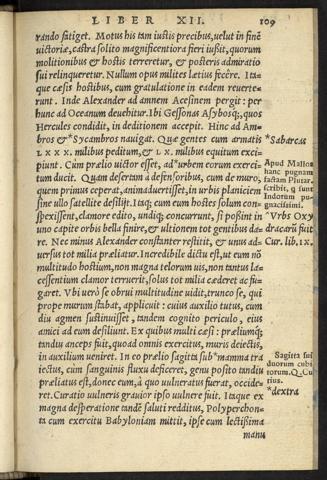 LIBER XII. 109
rando fatiget. Motus his tam iustis precibus, uelut in finē
uictoriæ, castra solito magnificentiora fieri iußit, quorum
molitionibus & hostis terreretur, & posteris admiratio
sui relinqueretur. Nullum opus milites lætius fecêre. Ita-
que cæsis hostibus, cum gratulatione in eadem reuerte-
runt. Inde Alexander ad amnem Acesinem pergit: per
hunc ad Oceanum deuehitur. Ibi Gessonas Asybosq;, quos
Hercules condidit, in deditionem accepit. Hinc ad Am-
bros & *Sycambros nauigat. Quæ gentes cum armatis
LXXX. milibus peditum, & LX. milibus equitum exci-
piunt. Cùm prælio uictor esset, ad *urbem eorum exerci-
tum ducit. Quam desertam à defensoribus, cum de muro,
quem primus ceperat, animaduertisset, in urbis planiciem
sine ullo satellite desilijt. Itaq; cum eum hostes solum con-
spexissent, clamore edito, undiq; concurrunt, si poßint in
uno capite orbis bella finire, & ultionem tot gentibus da-
re. Nec minus Alexander constanter restitit, & unus ad-
uersus tot milia præliatur. Incredibile dictu est, ut eum nō
multitudo hostium, non magna telorum uis, non tantus la-
cessentium clamor terruerit, solus tot milia cæderet ac fu-
garet. Vbi uerò se obrui multitudine uidit, trunco se, qui
prope murum stabat, applicuit: cuius auxilio tutus, cum
diu agmen sustinuisset, tandem cognito periculo, eius
amici ad eum desiliunt. Ex quibus multi cæsi: præliumq;
tandiu anceps fuit, quoad omnis exercitus, muris deiectis,
in auxilium ueniret. In eo prælio sagitta sub *mamma tra
iectus, cùm sanguinis fluxu deficeret, genu posito tandiu
præliatus est, donec eum, à quo uulneratus fuerat, occide-
ret. Curatio uulneris grauior ipso uulnere fuit. Itaque ex
magna desperatione tandē saluti redditus, Polyperchon-
ta cum exercitu Babyloniam mittit, ipse cum lectißima
manu
*Sabarcas
Apud Mallos
hanc pugnam
factam Plutar.
scribit, q sunt
Indorum pu-
gnacissimi.
*Vrbs Oxy
dracarū fuit
Cur. lib. IX.
Sagitta fuit
duorum cubi
torum. Q. Cu
rtius.
*dextra